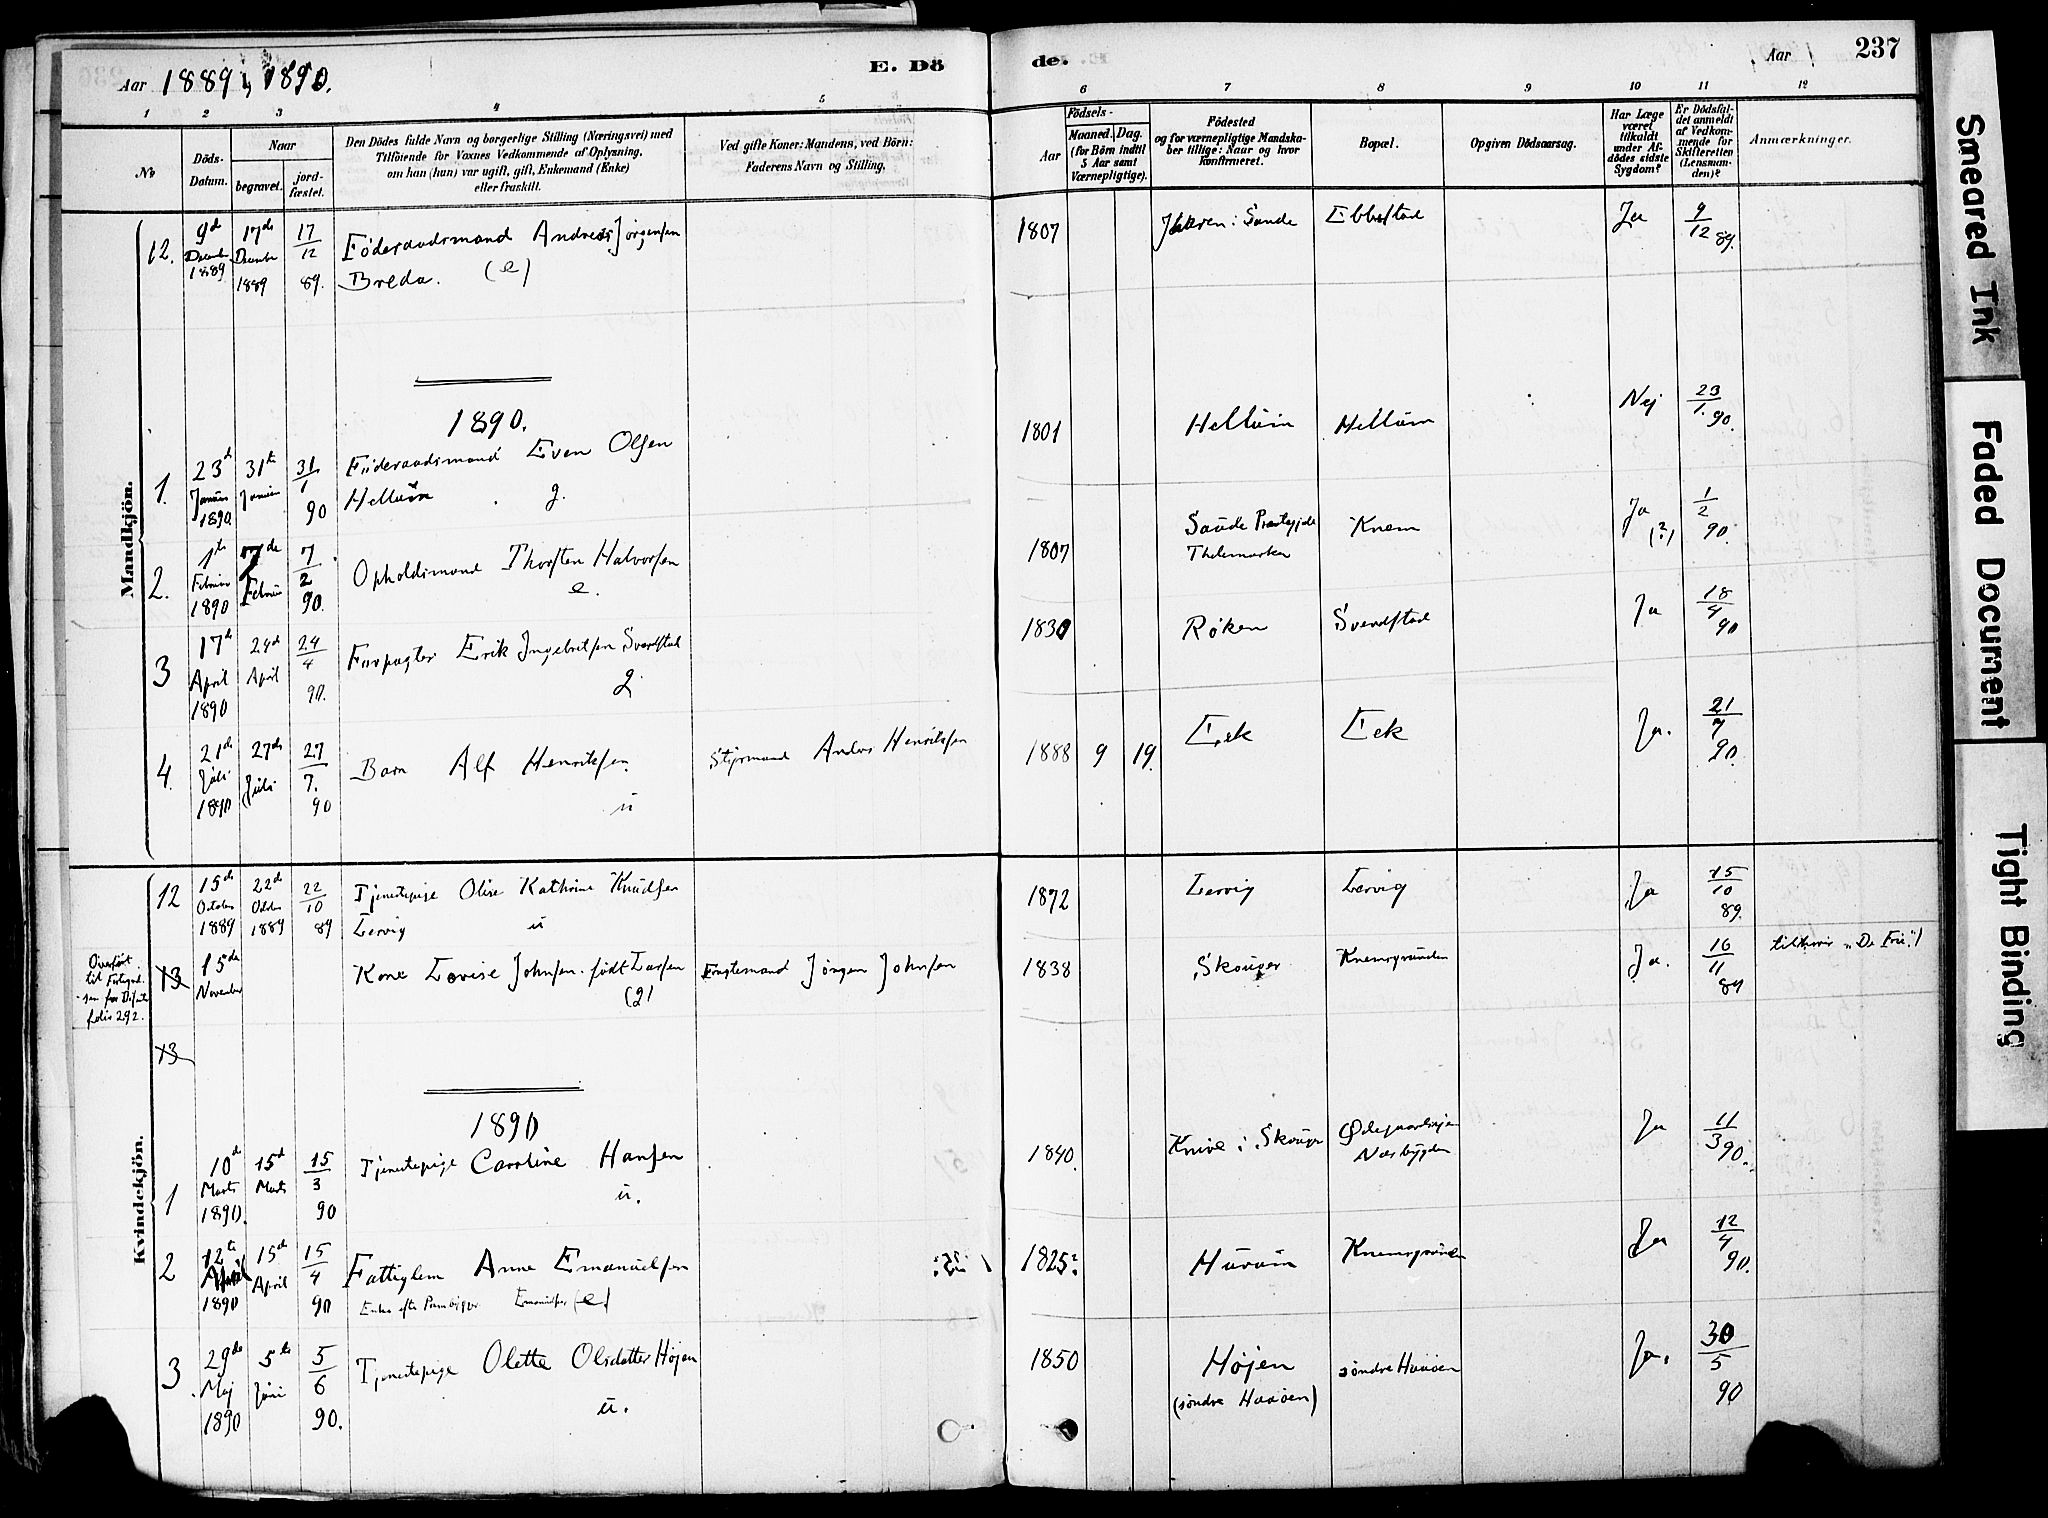 Aar 1889 1890.
E. Dö
de.
Aar
237
1
2
3
4
5
6
7
8
9
10
11
12
No
Döds-
Datum.
Naar
begravet.
jord-
fæstet.
Den Dödes fulde Navn og borgerlige Stilling (Næringsvei) med
Tilföiende for Voxnes Vedkommende af Oplysning,
om han (hun) var ugift, gift, Enkemand (Enke)
eller fraskilt.
Ved gifte Koner: Mandens, ved Börn:
Faderens Navn og Stilling.
Födsels-
Aar
Maaned.
Dag.
(for Börn indtil
5 Aar samt
Værnepligtige).
Födested
og for værnepligtige Mandska-
ber tillige: Naar og hvor
konfirmeret.
Bopæl.
Opgiven Dödsaarsag.
Har Læge
været
tilkaldt
under Af-
dödes sidste
Sygdom?
Er Dödsfal-
det anmeldt
af Vedkom-
mende for
Skifteretten
(Lensman-
den)?
Anmærkninger.
Mandkjön.
12. 9de December 1889 17de December 1889 17/12 89. Föderaadsmand Andreas Jörgensen
Breda. (e)
1807 i Sande Ebbestad Ja 9/12 89.
1890.
1. 23d Januar 1890. 31te Januar 31/1 90 Föderaadsmand Even Olsen
Hellum g.
1801 Hellum Hellum Nej 23/1. 90.
2. 1te Februar 1890 7de Februar 7/2 90. Opholdsmand Thorsten Halvorsen
e.
1807 Saude Præstegjeld
Thelemarken Knem Ja (?) 1/2 90.
3 17de April 1890 24d April 24/4 90. Forpagter Erik Ingebretsen Sverdstad
g.
1830 Røken Sverdstad Ja 18/4 90
4. 21de Juli 1890 27de Juli 27/7. 90 Barn Alf Henriksen.
u
Styrmand Anders Henriksen 1888 9 19. Eek Eek Ja. 21/7 90.
Kvindekjön.
12 15de October 1889 22de October 1889 22/10 89 Tjenestepige Olise Kathrine Knudsen
Lervig u
1872 Lervig Lervig Ja 15/10 89.
Overført
til Fortegnel-
sen for Dissent.
folio 292.
13 15de November Kone Lovise Johnsen født Larsen
(g)
Jörgen Johnsen 1838 Skouger Knemsgrunden Ja. 16/11 89 tilhører "De Frie".
13
1890
1 10d Marts 1890. 15d Marts 15/3 90 Tjenestepige Caroline Hansen
u.
1840. Knive i Skouger Ødegaardseje
Næsbygden Ja 11/3 90.
2 12te April 1890 15d April 15/4 90 Fattiglem Anne Emanuelsen
Enke efter Emanuelsen (e)
1825? Hurum Knemsgrunden Ja 12/4 90.
3 29de Maj 1890 5te Juni 5/6 90. Tjenestepige Olette Olsdatter Højen
u.
1850 Højen
(søndre Haaøen) søndre Haaøen Ja. 30/5 90
Smeared Ink
Faded Document
Tight Binding